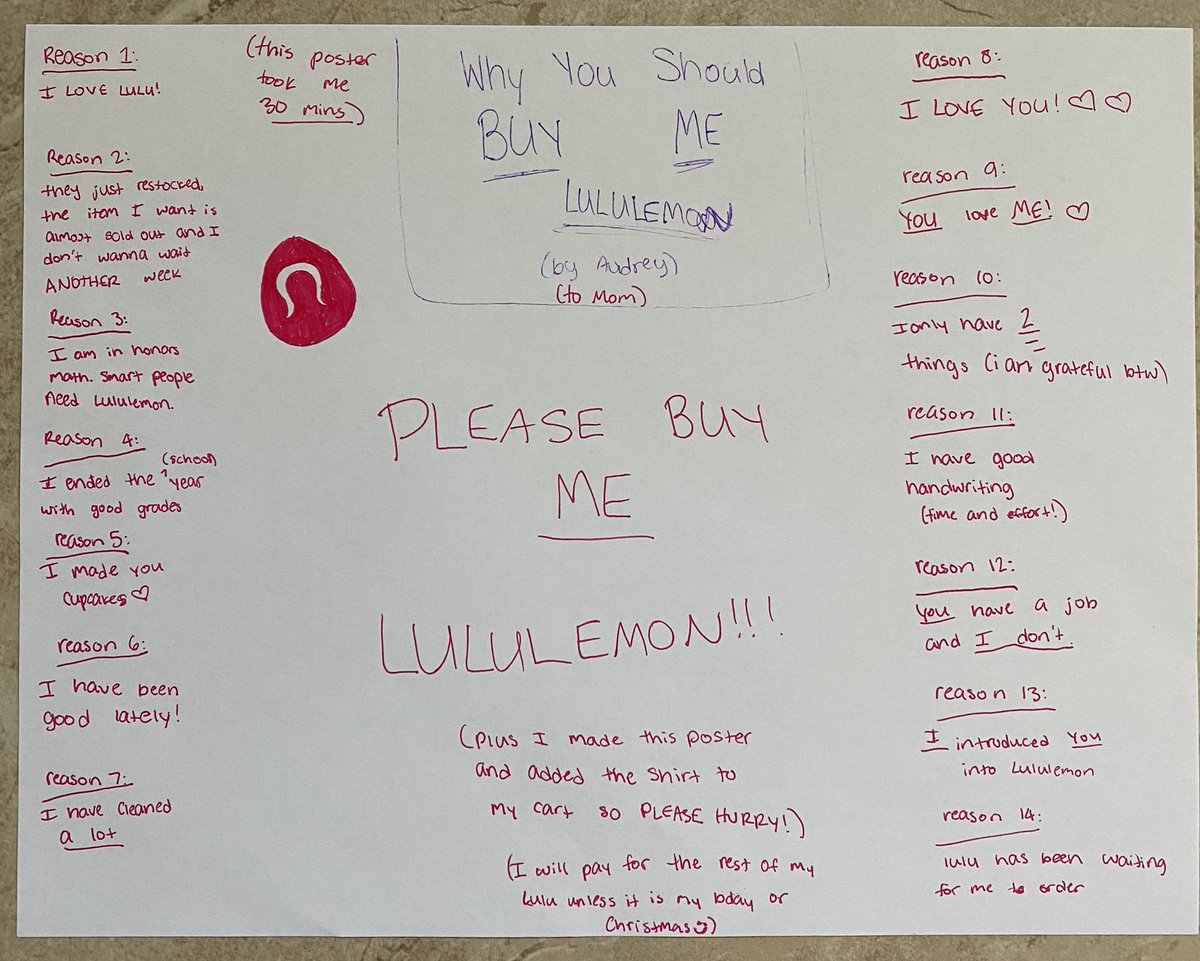 Why You Should
BUY ME
LULULEMON
(by Audrey)
(to Mom)
(this poster
took me
30 mins)
Reason 1:
I LOVE LULU!
Reason 2:
they just restocked,
the item I want is
almost sold out and I
don't wanna wait
ANOTHER week
Reason 3:
I am in honors
math. Smart people
need Lululemon.
Reason 4:
(school)
I ended the ^ year
with good grades
reason 5:
I made you
cupcakes ♡
reason 6:
I have been
good lately!
reason 7:
I have cleaned
a lot
PLEASE BUY
ME
LULULEMON!!!
(plus I made this poster
and added the shirt to
my cart so PLEASE HURRY!)
(I will pay for the rest of my
Lulu unless it is my bday or
Christmas☺)
reason 8:
I LOVE YOU! ♡ ♡
reason 9:
YOU love ME! ♡
reason 10:
I only have 2
things (i am grateful btw)
reason 11:
I have good
handwriting
(time and effort!)
reason 12:
you have a job
and I don't.
reason 13:
I introduced you
into Lululemon
reason 14:
lulu has been waiting
for me to order